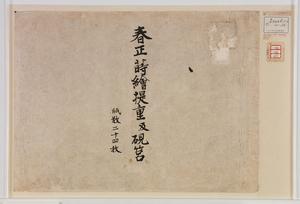 春正蒔繪提重及硯筥
紙数二十四枚